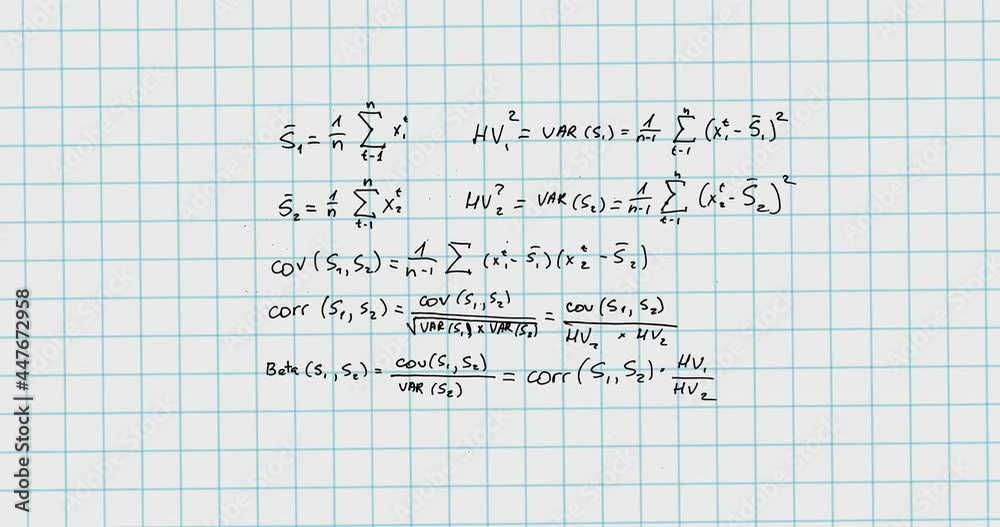 S̄₁ = 1/n ∑ₜ₋₁ⁿ x₁ᵗ    HV₁² = VAR (S₁) = 1/(n-1) ∑ₜ₋₁ⁿ (x₁ᵗ - S̄₁)²
S̄₂ = 1/n ∑ₜ₋₁ⁿ x₂ᵗ    HV₂² = VAR (S₂) = 1/(n-1) ∑ₜ₋₁ⁿ (x₂ᵗ - S̄₂)²
cov (S₁, S₂) = 1/(n-1) ∑ (x₁ᵗ - S̄₁) (x₂ᵗ - S̄₂)
corr (S₁, S₂) = cov (S₁, S₂) / √(VAR (S₁) × VAR (S₂)) = cov (S₁, S₂) / (HV₁ × HV₂)
Beta (S₁, S₂) = cov (S₁, S₂) / VAR (S₂) = corr (S₁, S₂) · HV₁ / HV₂
Adobe Stock | #447672958